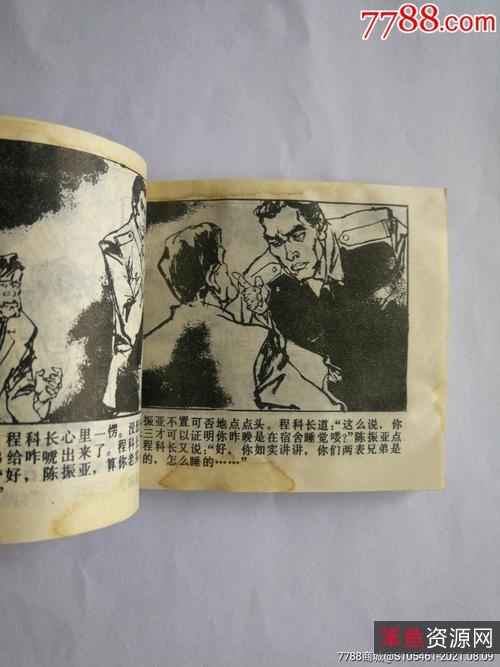 7788.com
程科长心里一愣。没
给咋唬出来了。程科
“好，陈振亚，算你老
”
振亚不置可否地点点头。程科长道：“这么说，你
三才可以证明你昨晚是在宿舍睡觉喽？”陈振亚点
程科长又说：“好，你如实讲讲，你们两表兄弟是
的，怎么睡的……”
笨鱼资源网
7788商城@S105461-2021.08.09